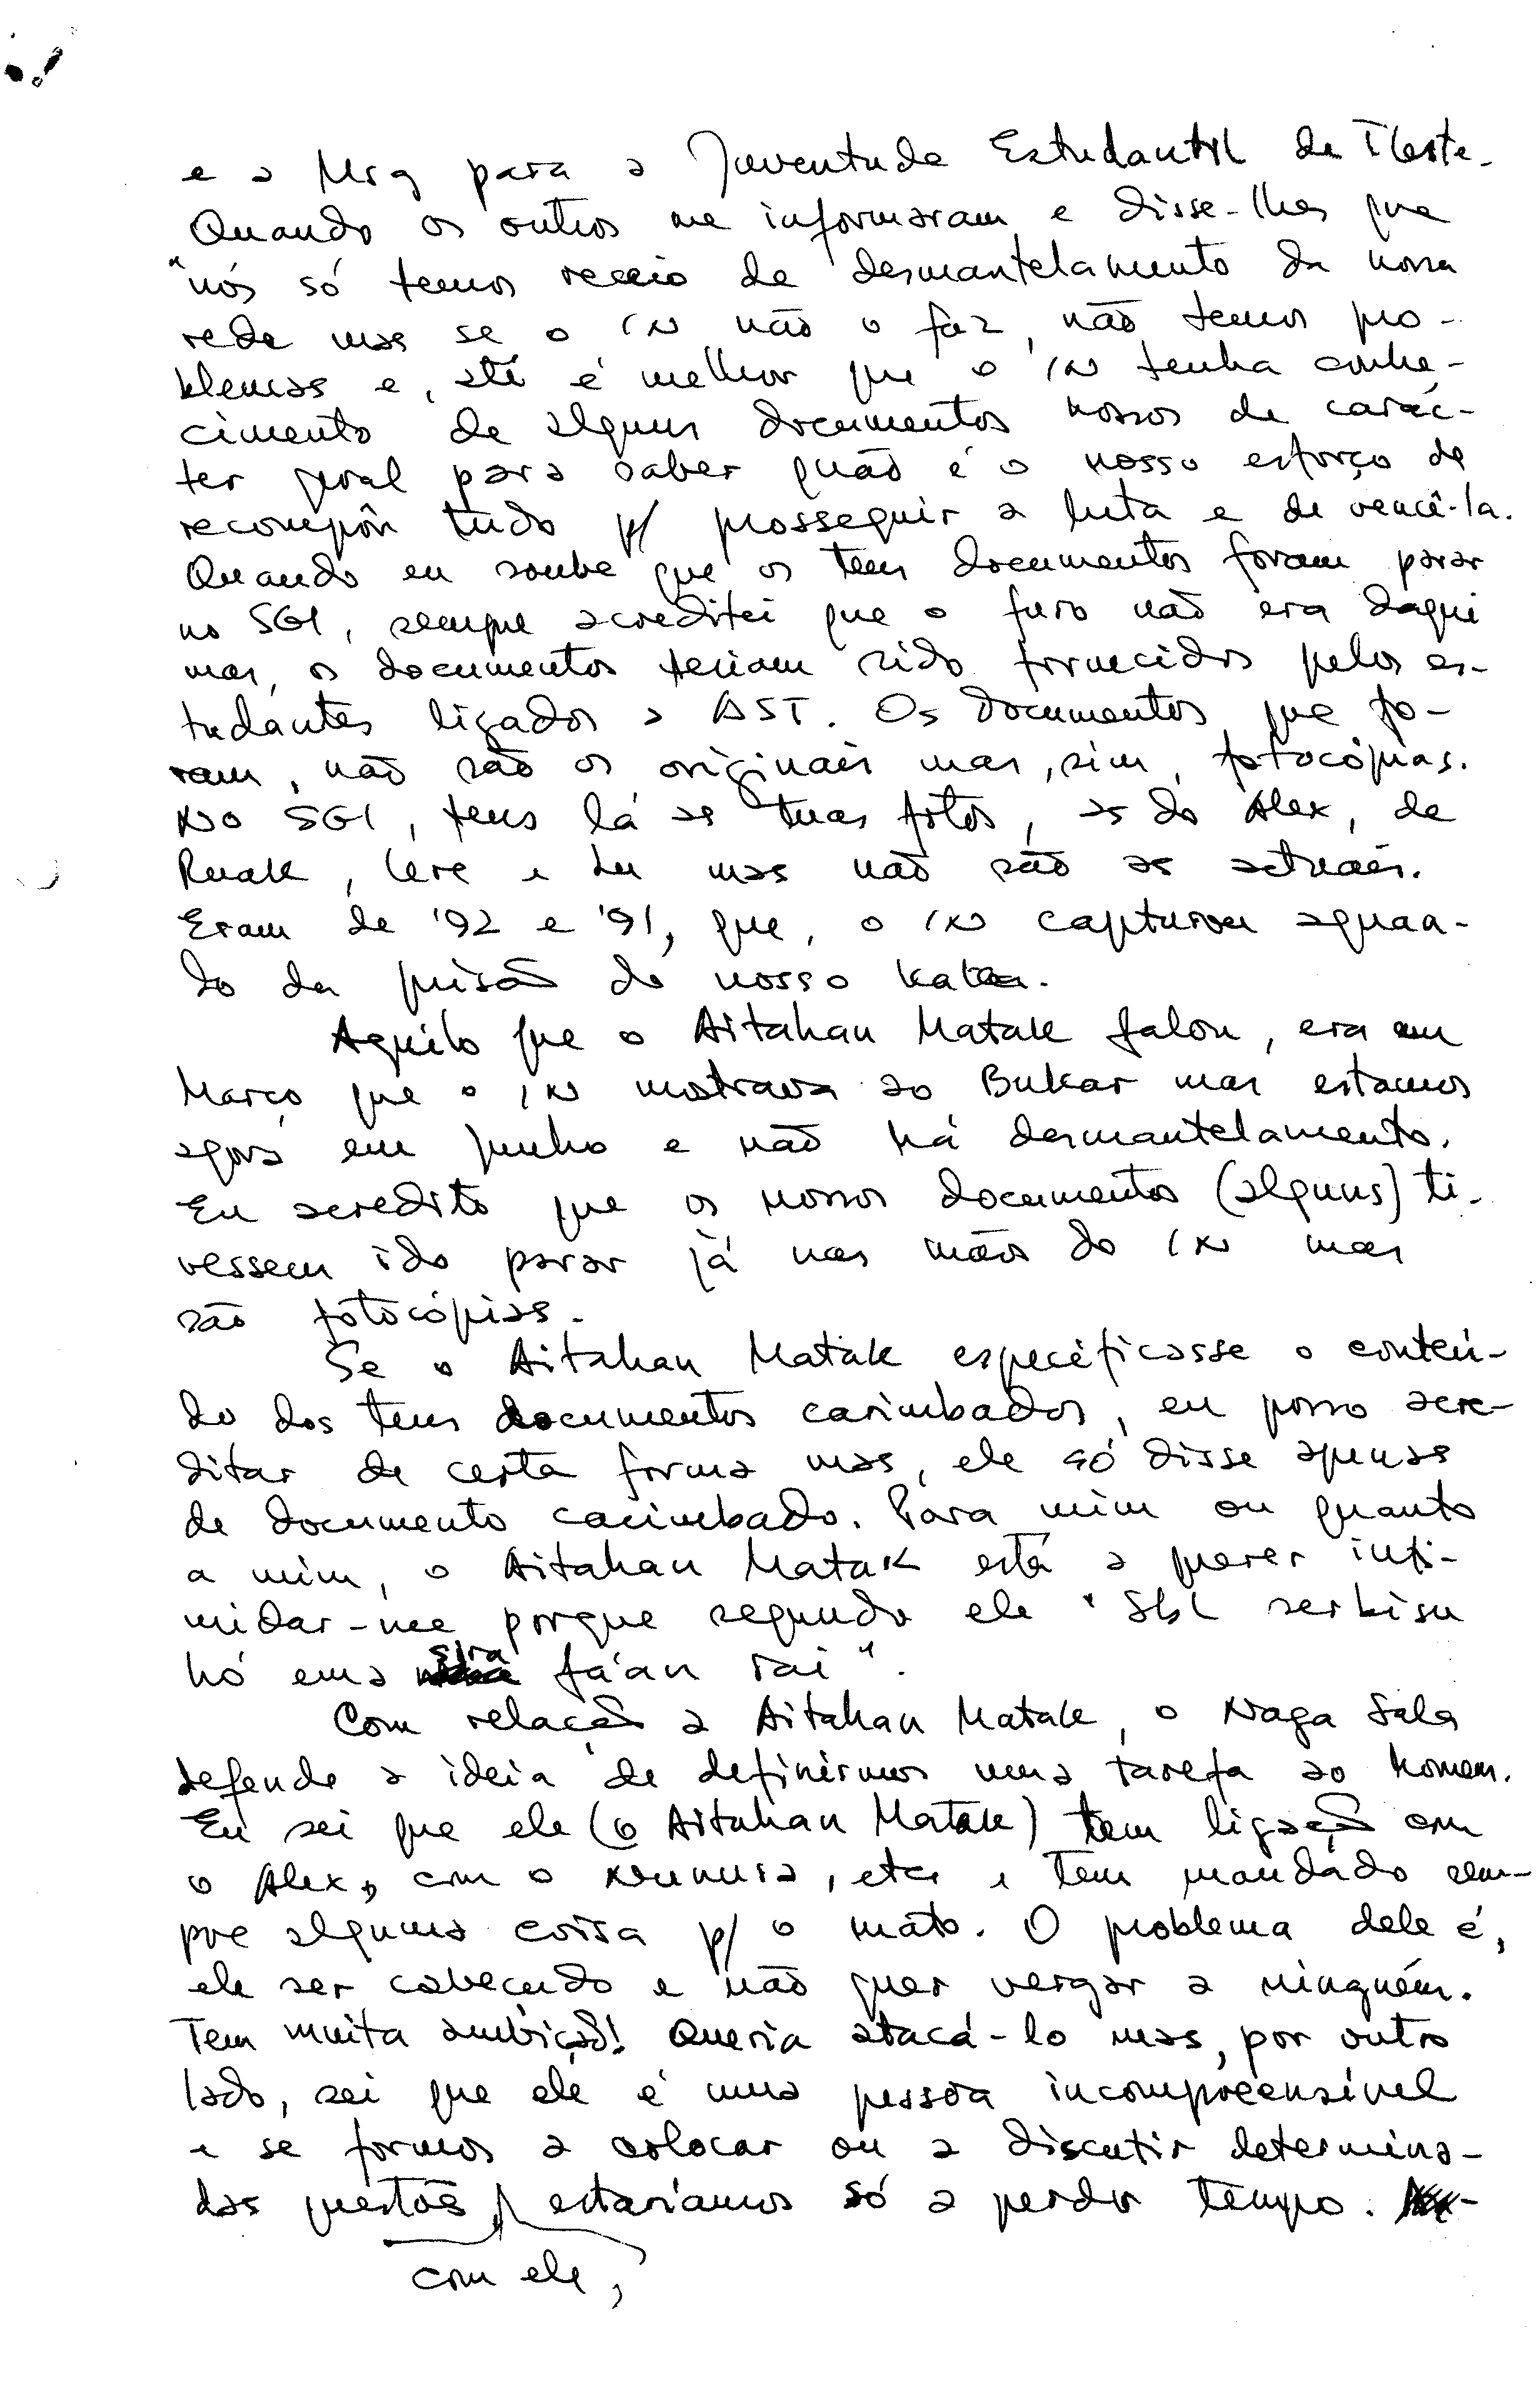 e a Msg para a Juventude Estudantil de TLeste.
Quando os outros me informaram, e disse-lhes que
"nós só temos receio de desmantelamento da nossa
rede mas se o IN não o faz, não temos pro-
blemas e, até é melhor que o IN tenha conhe-
cimento de alguns documentos nossos de carác-
ter geral para saber quão é o nosso esforço de
recompôr tudo p/ prosseguir a luta e de vencê-la.
Quando eu soube que os teus documentos foram parar
no SGI, sempre acreditei que o furo não era daqui
mas, os documentos teriam sido fornecidos pelos es-
tudantes ligados a AST. Os documentos que fo-
ram, não são os originais mas, sim, fotocópias.
No SGI, tens lá as tuas fotos, as do Alex, de
Ruak, Lere e Lu mas não são as actuais.
Eram de '92 e '91, que, o IN capturou aquan-
do da prisão do nosso
Aquilo que o Aitahan Matak falou, era em
Março que o IN mostrava ao Bukar mas estamos
agora em Junho e não há desmantelamento.
Eu acredito que os nossos documentos (alguns) ti-
vessem ido parar já nas mãos do IN mas
são fotocópias.
Se o Aitahan Matak especificasse o conteú-
do dos teus documentos carimbados, eu posso acre-
ditar de certa forma mas, ele só disse apenas
de documento carimbado. Para mim ou quanto
a mim, o Aitahan Matak está a querer inti-
midar-me porque segundo ele "Sbl serbisu
hó ema sira fá'an rai".
Com relação a Aitahan Matak, o Naga Sala
defende a ideia de definirmos uma tarefa ao homem.
Eu sei que ele (o Aitahan Matak) tem ligação com
o Alex, com o etc e tem mandado sem-
pre alguma coisa p/ o mato. O problema dele é,
ele ser cabeçudo e não quer vergar a ninguém.
Tem muita ambição! Queria atacá-lo mas, por outro
lado, sei que ele é uma pessoa incompreensível
e se formos a colocar ou a discutir determina-
das questões com ele, estaríamos só a perder tempo.